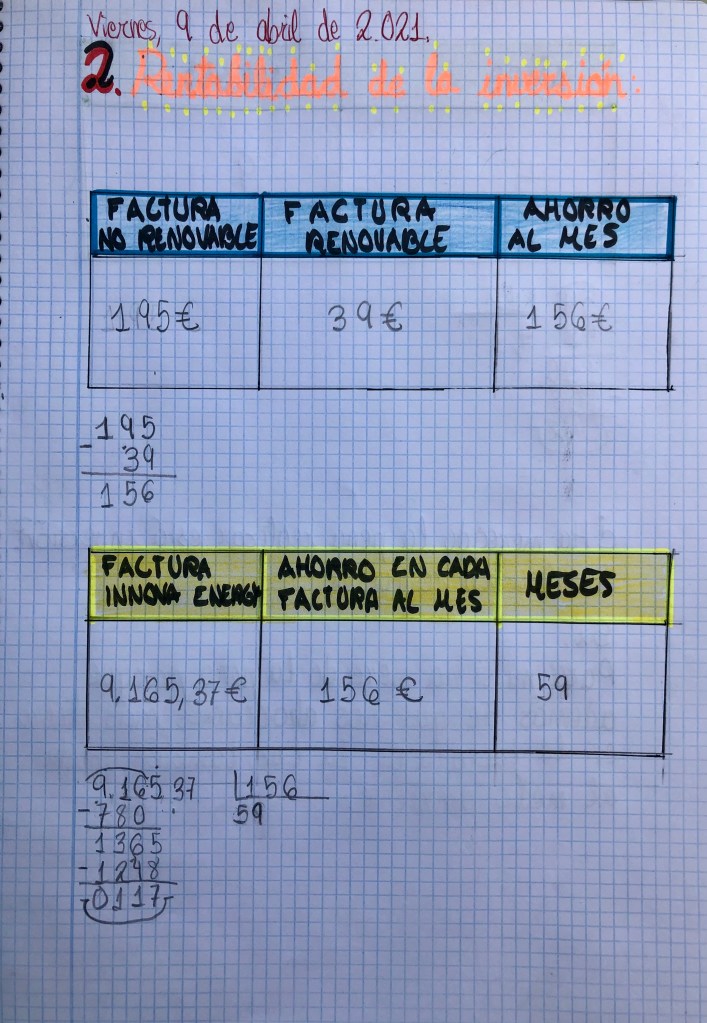 Viernes, 9 de abril de 2.021.
2. Rentabilidad de la inversión:
FACTURA NO RENOVABLE
FACTURA RENOVABLE
AHORRO AL MES
195€
39€
156€
195
- 39
156
FACTURA INNOVA ENERGY
AHORRO EN CADA FACTURA AL MES
MESES
9.165,37€
156 €
59
9.165 37 156
-780 59
1365
-1248
0117